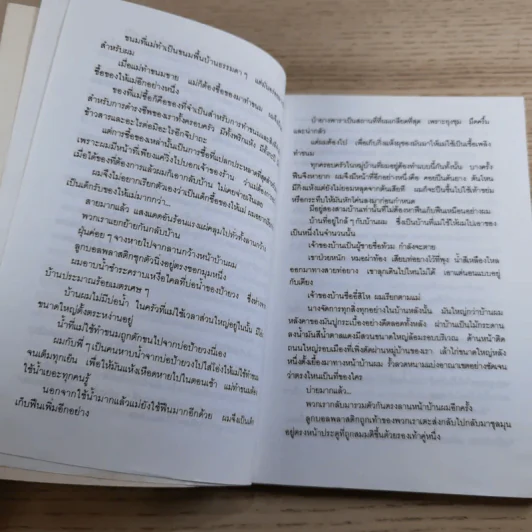 ขนมที่แม่ทำเป็นขนมพื้นบ้านธรรมดา ๆ
สำหรับผม
เมื่อแม่ทำขนมขาย แม่ก็ต้องซื้อของมาทำขนม
ซื้อของให้แม่อีกอย่างหนึ่ง
ของที่แม่ซื้อก็คือของที่จำเป็นสำหรับการทำขนม
สำหรับการดำรงชีพของเราทั้งครอบครัว มีทั้งพริกแห้ง
ข้าวสารและอะไรต่อมิอะไรอีกจิปาถะ
แต่การซื้อของเหล่านั้นเป็นการซื้อที่แปลกประหลาดที่สุด
เพราะผมมีหน้าที่เพียงแค่วิ่งไปบอกเจ้าของร้าน
เมื่อได้ของที่ต้องการแล้วผมก็เอากลับบ้าน ไม่เคยจ่ายเงินเลย
ผมจึงไม่อยากเรียกตัวเองว่าเป็นเด็กซื้อของให้แม่
เป็นเด็กรับของให้แม่มากกว่า...
สายมากแล้ว แสงแดดอันร้อนแรงแผ่คลุมไปทั่วทั้งลานกว้าง
พวกเราแยกย้ายกันกลับบ้าน
ฝุ่นค่อย ๆ จางหายไปจากลานกว้างหน้าบ้านผม
ลูกบอลพลาสติกซุกตัวนิ่งอยู่ตรงซอกมุมหนึ่ง
ผมอาบน้ำชำระคราบเหงื่อไคลที่บ่อน้ำของป้ายวง
บ้านประมาณร้อยเมตรเศษ ๆ
บ้านผมไม่มีบ่อน้ำ ในครัวที่แม่ใช้เวลาส่วนใหญ่อยู่ในนั้น มีโอ่ง
ขนาดใหญ่ตั้งตระหง่านอยู่
น้ำที่แม่ใช้ทำขนมถูกตักขนไปจากบ่อป้ายวงนี่เอง
ผมกับพี่ ๆ เป็นคนหาบน้ำจากบ่อป้ายวงไปใส่โอ่งให้แม่ใช้ทำขนม
จนเต็มทุกเย็น เพื่อให้มันแห้งเหือดหายไปในตอนเช้า แม่ทำขนม
ใช้น้ำเยอะทุกคนรู้
นอกจากใช้น้ำมากแล้วแม่ยังใช้ฟืนมากอีกด้วย ผมจึงเป็นเด็ก
เก็บฟืนเพิ่มอีกอย่าง
ป่ายางพาราเป็นสถานที่ที่ผมเกลียดที่สุด เพราะยุงชุม มืดครึ้ม
และน่ากลัว
แต่ผมต้องไป เพื่อเก็บกิ่งแห้งผุของมันมาให้แม่ใช้เป็นเชื้อเพลิง
ทำขนม
ทุกครอบครัวในหมู่บ้านที่ผมอยู่ต้องทำแบบนี้กันทั้งนั้น บางครั้ง
มีกิ่งแห้งแต่ยังไม่ยอมหลุดจากต้นเสียที ผมก็จะปีนขึ้นไปใช้เท้าข่ม
หรือกระทืบให้มันหักโค่นลงมาก่อนกำหนด
มีอยู่สองสามบ้านเท่านั้นที่ไม่ต้องหาฟืนเก็บฟืนเหมือนอย่างผม
บ้านที่อยู่ใกล้ ๆ กับบ้านผม ซึ่งเป็นบ้านที่แม่ใช้ให้ผมไปเอาของ
เป็นหนึ่งในจำนวนนั้น
เจ้าของบ้านเป็นผู้ชายชื่อหัวม กำลังจะตาย
เขาป่วยหนัก หมอผ่าท้อง เสียบท่อยางไว้ที่พุง น้ำสีเหลืองไหล
ออกมาทางสายท่อยาง เขาลุกเดินไปไหนไม่ได้ เอาแต่นอนแบบอยู่
กับเตียง
เจ้าของบ้านชื่ออี้สีไห ผมเรียกตามแม่
บางครั้งจักรทุกสิ่งทุกอย่างในบ้านหลังนั้น มันใหญ่กว่าบ้านผม
หลังคาของมันปูกระเบื้องอย่างดีตลอดทั้งหลัง ฝาบ้านเป็นไม้กระดาน
ลงน้ำมันสีน้ำตาลแดงมีสวนขนาดใหญ่ล้อมรอบบริเวณ ด้านหน้าติด
ถนนใหญ่รอบเมืองที่เพิ่งตัดผ่านหมู่บ้านของเรา เล้าไก่ขนาดใหญ่หลัง
หนึ่งตั้งเยื้องมาทางหน้าบ้านผม รั้วลวดหนามแบ่งอาณาเขตอย่างชัดเจน
ว่าตรงไหนเป็นที่ของใคร
บ่ายมากแล้ว...
พวกเรากลับมารวมตัวกันตรงลานหน้าบ้านผมอีกครั้ง
ลูกบอลพลาสติกถูกเท้าของพวกเราเตะส่งกลับไปกลับมาชุลมุน
อยู่ตรงหน้าประตูที่ถูกสมมติขึ้นด้วยรองเท้าคู่หนึ่ง